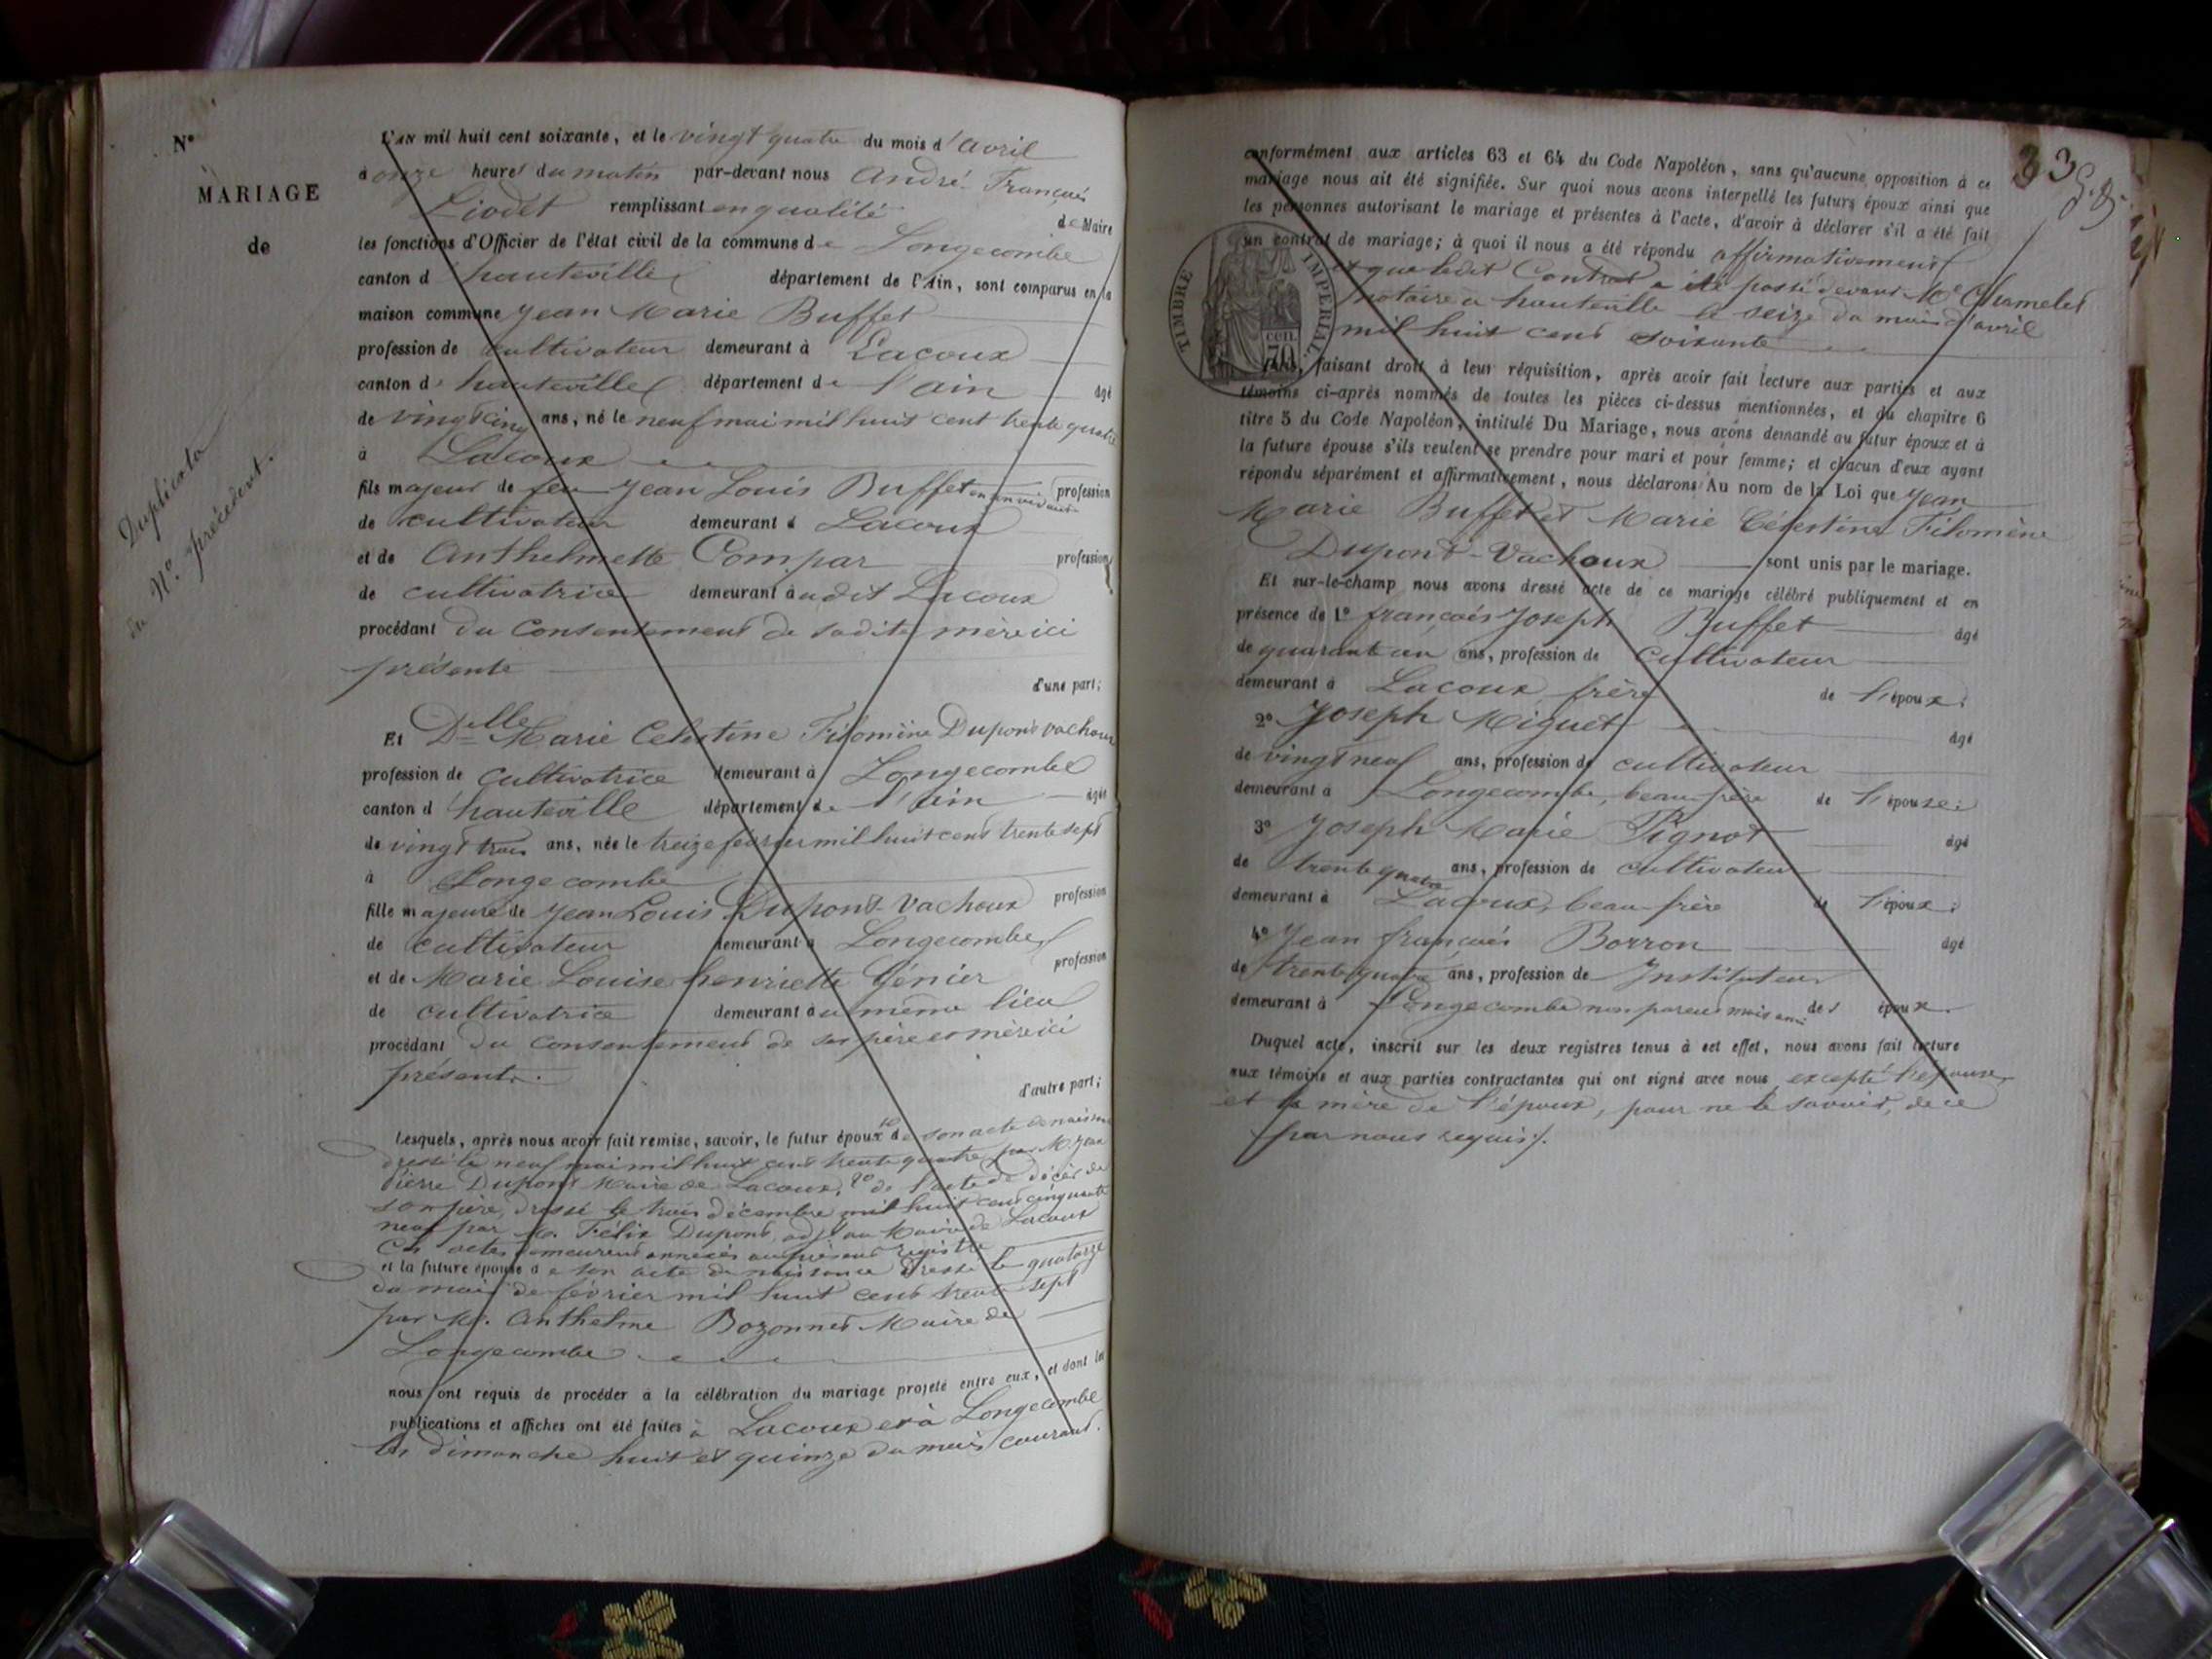 N°
MARIAGE
de
Duplicata
du N°. précédent.
L'AN mil huit cent soixante, et le vingt quatre du mois d'avril
à onze heures du matin par-devant nous André François
Liodet remplissant en qualité de Maire
les fonctions d'Officier de l'état civil de la commune de Longecombe
canton d'hauteville département de l'Ain, sont comparus en la
maison commune Jean Marie Buffet
profession de cultivateur demeurant à Lacoux
canton d'hauteville département de l'ain âgé
de vingt cinq ans, né le neuf mai mil huit cent trente quatre
à Lacoux
fils majeur de feu Jean Louis Buffet en son vivant profession
de cultivateur demeurant à Lacoux
et de Anthelmette Compar profession
de cultivatrice demeurant audit Lacoux
procédant du Consentement de sadite mère ici
présente
d'une part;
Et Delle Marie Celestine Filomène Dupont Vachoux
profession de cultivatrice demeurant à Longecombe
canton d'hauteville département de l'ain âgée
de vingt trois ans, née le treize février mil huit cent trente sept
à Longecombe
fille majeure de Jean Louis Dupont-Vachoux profession
de cultivateur demeurant à Longecombe
et de Marie Louise henriette Génier profession
de cultivatrice demeurant au même lieu
procédant du Consentement de ses père et mère ici
présents.
d'autre part;
Lesquels, après nous avoir fait remise, savoir, le futur époux 1° de son acte de naissance
dressé le neuf mai mil huit cent trente quatre, par M. Jean
Pierre Dupont Maire de Lacoux, 2° de l'acte de décès de
son père, dressé le trois décembre mil huit cent cinquante
neuf par M. Félix Dupont, adjt au Maire de Lacoux
Ces actes demeurent annexés au présent registre
et la future épouse de son acte de naissance dressé le quatorze
du mois de février mil huit cent trente sept
par M. Anthelme Bozonnet Maire de
Longecombe
nous ont requis de procéder à la célébration du mariage projeté entre eux, et dont les
publications et affiches ont été faites à Lacoux et à Longecombe
les dimanche huit et quinze du mois courant.
33
conformément aux articles 63 et 64 du Code Napoléon, sans qu'aucune opposition à ce
mariage nous ait été signifiée. Sur quoi nous avons interpellé les futurs époux ainsi que
les personnes autorisant le mariage et présentes à l'acte, d'avoir à déclarer s'il a été fait
un contrat de mariage; à quoi il nous a été répondu affirmativement
et que ledit Contrat a été passé devant Me Chamelet
notaire à hauteville le seize du mois d'avril
mil huit cent soixante
TIMBRE IMPERIAL
cen. 70
faisant droit à leur réquisition, après avoir fait lecture aux parties et aux
témoins ci-après nommés de toutes les pièces ci-dessus mentionnées, et du chapitre 6
titre 5 du Code Napoléon, intitulé Du Mariage, nous avons demandé au futur époux et à
la future épouse s'ils veulent se prendre pour mari et pour femme; et chacun d'eux ayant
répondu séparément et affirmativement, nous déclarons Au nom de la Loi que Jean
Marie Buffet et Marie Célestine Filomène
Dupont-Vachoux sont unis par le mariage.
Et sur-le-champ nous avons dressé acte de ce mariage célébré publiquement et en
présence de 1° françois Joseph Buffet âgé
de quarante un ans, profession de cultivateur
demeurant à Lacoux, frère de l'époux;
2° Joseph Miguet âgé
de vingt neuf ans, profession de cultivateur
demeurant à Longecombe, beau-frère de l'épouse;
3° Joseph Marie Pignot âgé
de trente quatre ans, profession de cultivateur
demeurant à Lacoux, beau-frère de l'époux;
4° Jean françois Borron âgé
de trente quatre ans, profession de Instituteur
demeurant à Longecombe non parent mais ami des époux.
Duquel acte, inscrit sur les deux registres tenus à cet effet, nous avons fait lecture
aux témoins et aux parties contractantes qui ont signé avec nous excepté l'épouse
et la mère de l'époux, pour ne le savoir, de ce
par nous requis.